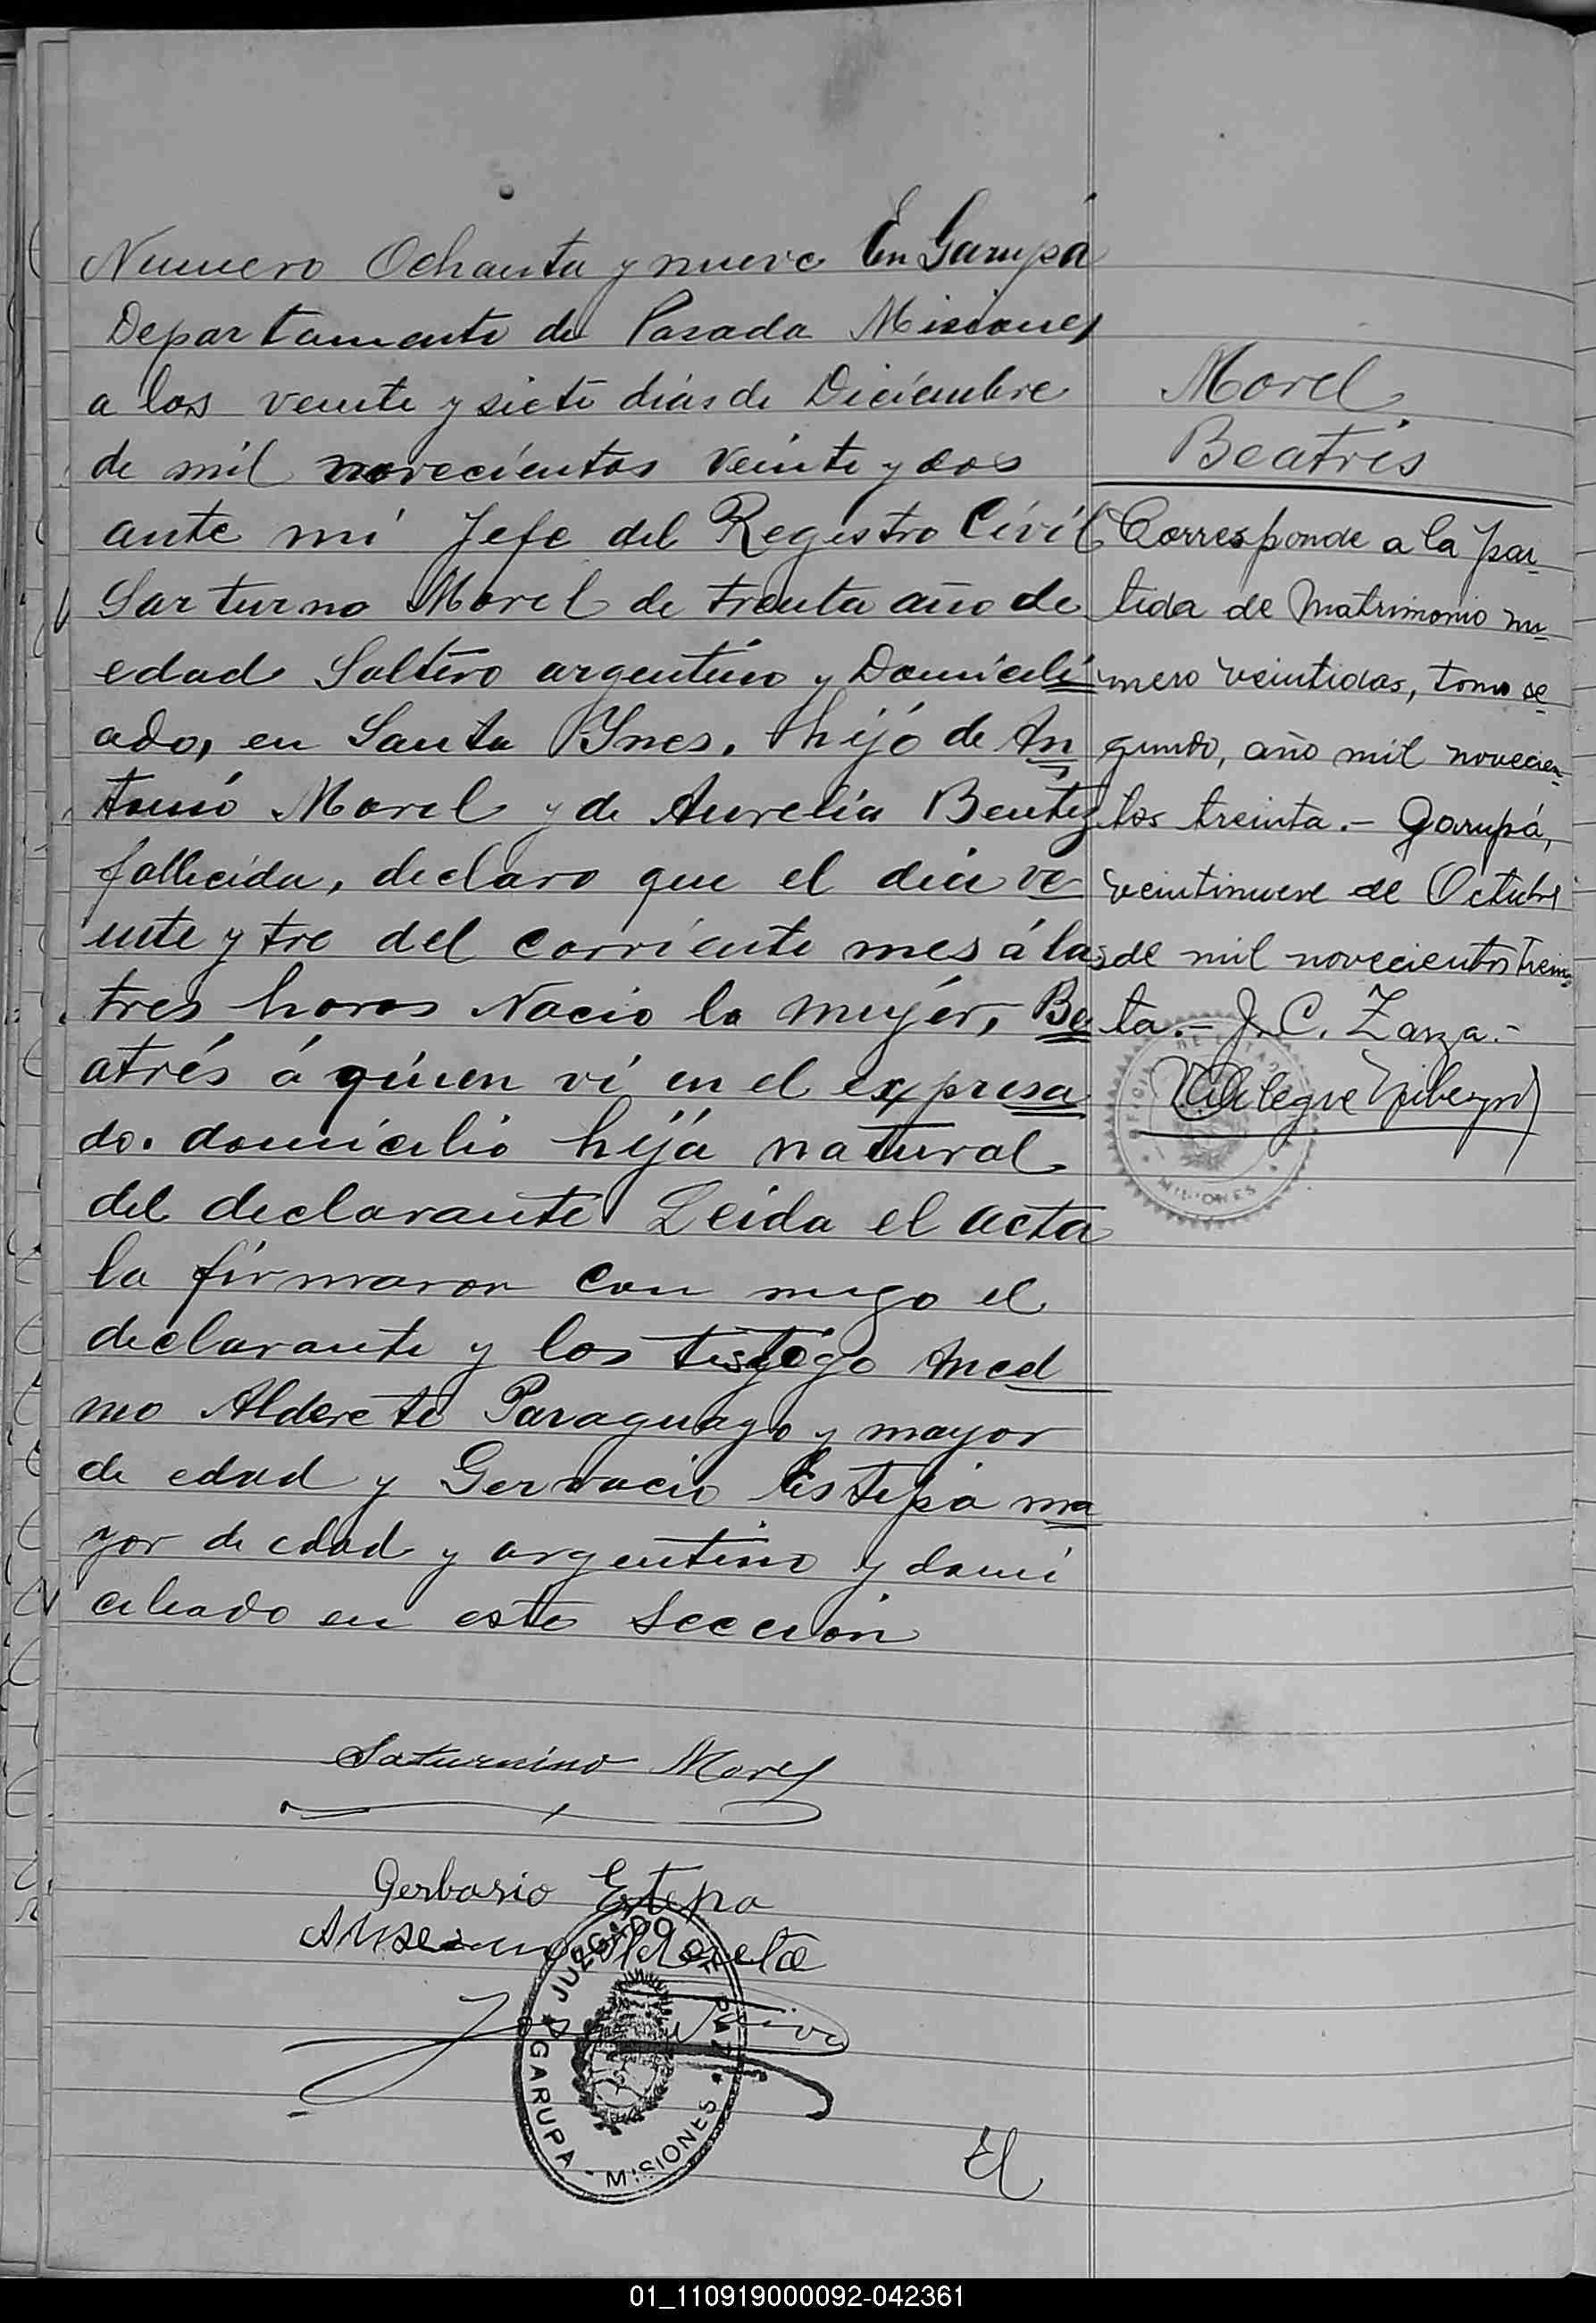 Numero Ochenta y nueve En Garupá
Departamento de Posada Misiones
a los veinte y siete dias de Diciembre
de mil novecientos veinte y dos
ante mi Jefe del Registro Civil
Sarturno Morel de trenta año de
edad Soltero argentino y Domicili
ado, en Santa Ynes. hijo de An
tonio Morel y de Aurelia Beutez
fallecida, declaro que el dia ve
inte y tre del corriente mes á las
tres horas Nacio la mujer, Be
atrés á quien vi en el expresa
do. domicilio hija natural
del declarante Leida el acta
la firmaron con migo el
declarante y los testigo
mo Alderete Paraguayo y mayor
de edad y Gervacio Estepa ma
yor de edad y argentino y domi
ciliado en este Sección
Saturnino Morel
Gerbasio Estepa
Alderete
JUZGADO DE PAZ
GARUPA - MISIONES
El
Morel
Beatris
Corresponde a la par
tida de Matrimonio nu
mero veintidos, tomo se
gundo, año mil novecien
tos treinta.- Garupá,
veintinueve de Octubre
de mil novecientos trein
ta.- J. C. Zarza.-
MISIONES
01_110919000092-042361